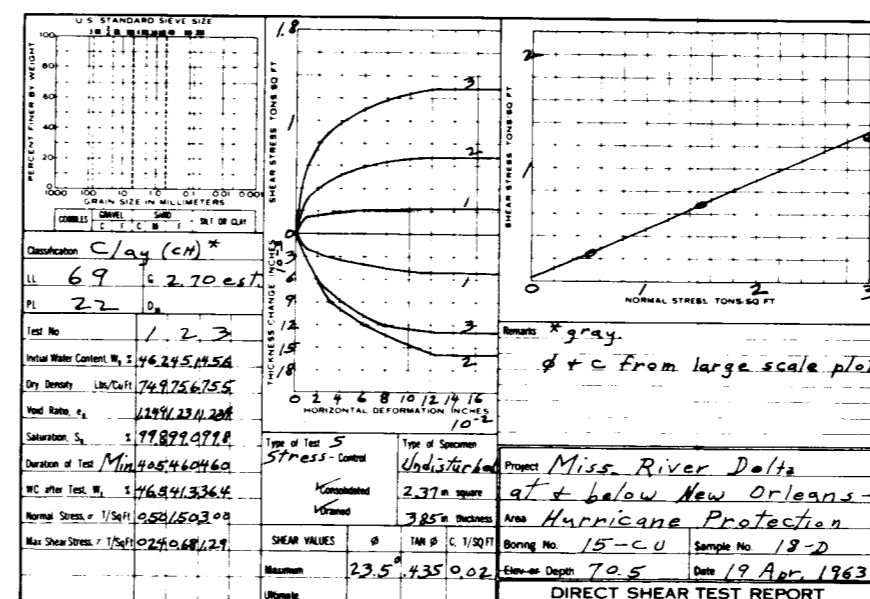 U S STANDARD SIEVE SIZE
PERCENT FINER BY WEIGHT
100
80
60
40
20
0
1000 100 10 1.0 0.1 0.01 0.001
GRAIN SIZE IN MILLIMETERS
COBBLES GRAVEL SAND SILT OR CLAY
C F C M F
Classification Clay (CH) *
LL 69 G 2.70 est.
PL 22 D
Test No 1 2 3
Initial Water Content, W, % 46.2 45.1 45.6
Dry Density Lbs/CuFt 74.9 75.6 75.5
Void Ratio, e
Saturation, S, % 99.8 99.0 99.8
Duration of Test Min 405 460 460
WC after Test, W, % 46.5 41.3 36.4
Normal Stress, σ T/SqFt 0.50 1.50 3.00
Max Shear Stress, τ T/SqFt 0.24 0.68 1.29
SHEAR STRESS TONS/SQ FT
1.8
1
0
3
2
1
THICKNESS CHANGE INCHES
10⁻³
3
6
9
12
15
18
1
3
2
0 2 4 6 8 10 12 14 16
HORIZONTAL DEFORMATION INCHES
10⁻²
Type of Test S
Stress - Control
Consolidated
Drained
Type of Specimen
Undisturbed
2.37 in square
.385 in thickness
SHEAR VALUES Ø TAN Ø C, T/SQ FT
Maximum 23.5° .435 0.02
Ultimate
SHEAR STRESS TONS/SQ FT
2
1
0 1 2 3
NORMAL STRESS, TONS/SQ FT
Remarks * gray.
Ø + c from large scale plo
Project Miss. River Delta
at & below New Orleans -
Area Hurricane Protection
Boring No. 15-CU Sample No. 18-D
Elev or Depth 70.5 Date 19 Apr. 1963
DIRECT SHEAR TEST REPORT